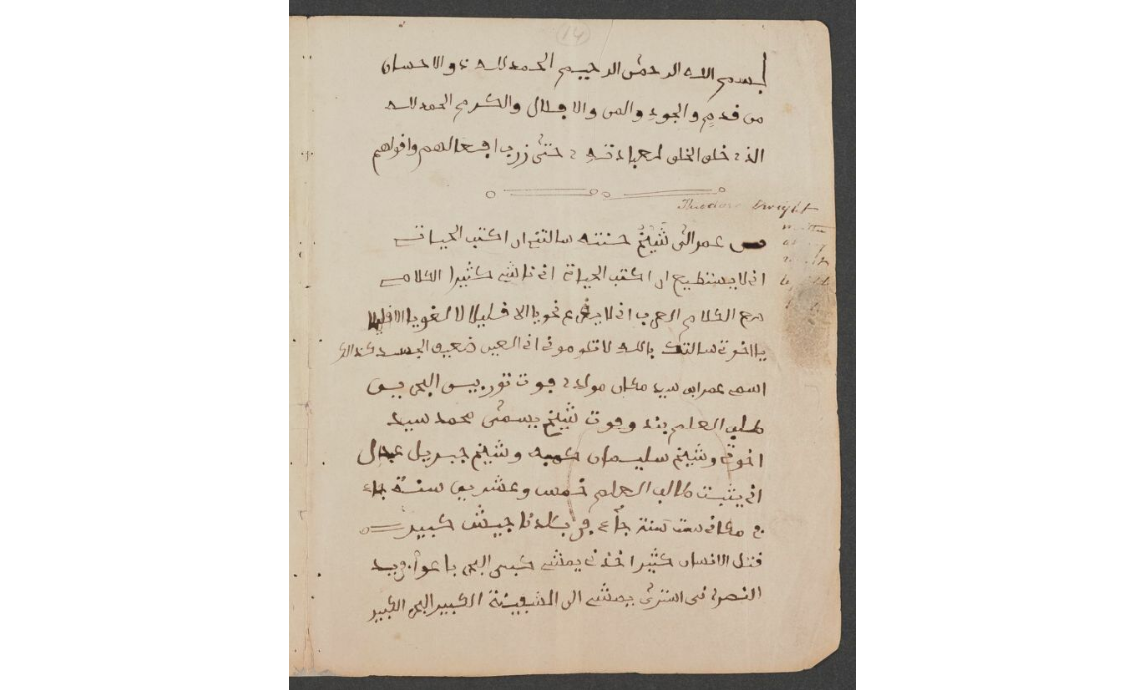 14
بسم الله الرحمن الرحيم الحمد لله ذو الاحسان
من قديم والجود والمن والافضال والكرم الحمد لله
الذي خلق الخلق لعبادته حتى زرب افعالهم واقوالهم
Theodore Dwight
من عمر الى شيخ حنته سالتني ان اكتب الحياتي
اني لا يستطيع ان اكتب الحياة اني ناشي كثيرا الكلامي
مع الكلام العرب اني لا نحويا الا قليلا لا لغويا الا قليلا
يا اخوتي سالتك بالله لا تلوموني اني العين ضعيف الجسد كذالك
اسمي عمر ابن سيد مكان مولدي فوت تور بين البحرين
طلب العلم بند و فوت شيخ يسمى محمد سيد
اخوني وشيخ سليمان كمبه وشيخ جبريل عبدال
اني يثبت طالب العلم خمس وعشرين سنة جاء
في مكاني ست سنة جاء في بلدنا جيش كبير
قتل الانسان كثيرا اخذني يمشي البحر باعوا في يد
النصراني استرى يمشي الى السفينة الكبير البحر الكبير